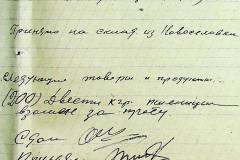 Принято на склад из Новоселовки
следующие товары и продукты...
(200) Двести кгр. пшеницы
взамен за
Сдал
Принял